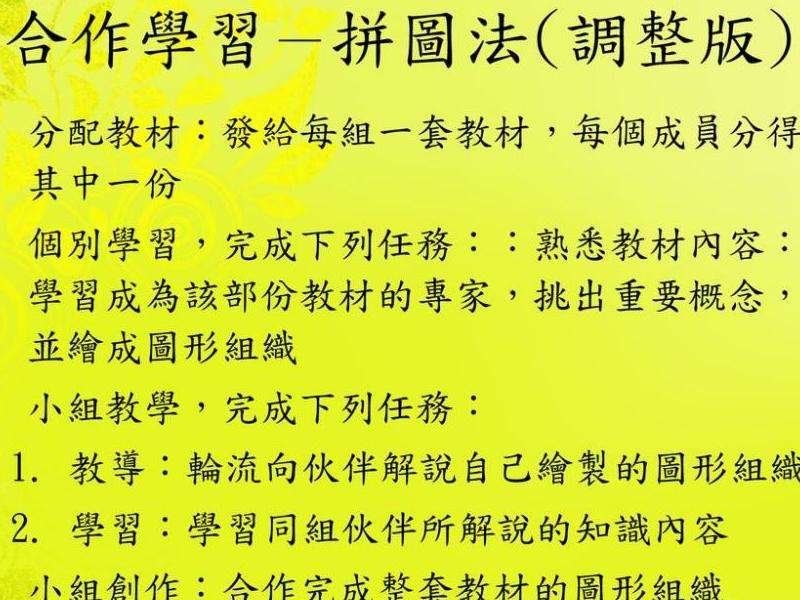 合作學習－拼圖法(調整版)
分配教材：發給每組一套教材，每個成員分得
其中一份
個別學習，完成下列任務：：熟悉教材內容：
學習成為該部份教材的專家，挑出重要概念，
並繪成圖形組織
小組教學，完成下列任務：
1. 教導：輪流向伙伴解說自己繪製的圖形組織
2. 學習：學習同組伙伴所解說的知識內容
小組創作：合作完成整套教材的圖形組織